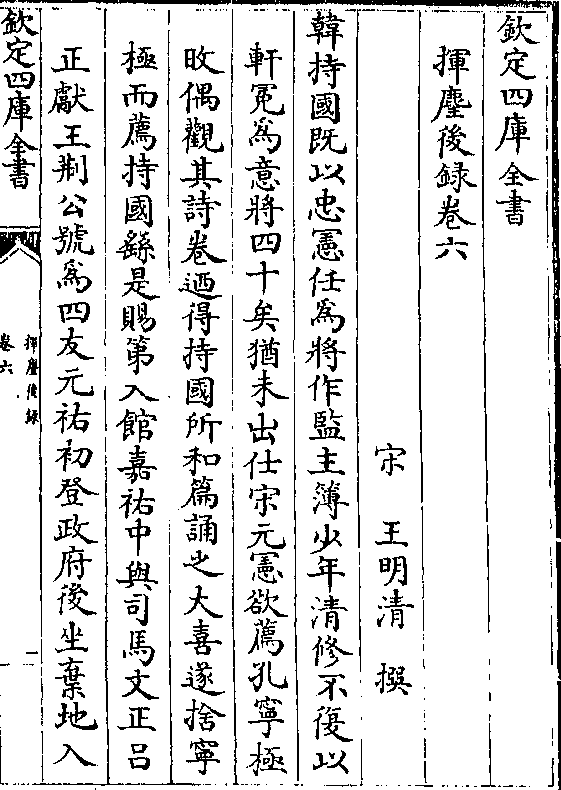 欽定四庫全書
揮麈後録卷六
宋 王明清 撰
韓持國既以忠憲任為將作監主簿少年清修不復以
軒冕為意將四十矣猶未出仕宋元憲欲薦孔寧極
旼偶觀其詩卷廼得持國所和篇誦之大喜遂捨寧
極而薦持國繇是賜第入館嘉祐中與司馬文正吕
正獻王荆公號為四友元祐初登政府後坐棄地入
欽定四庫全書
揮麈後録
卷六
一